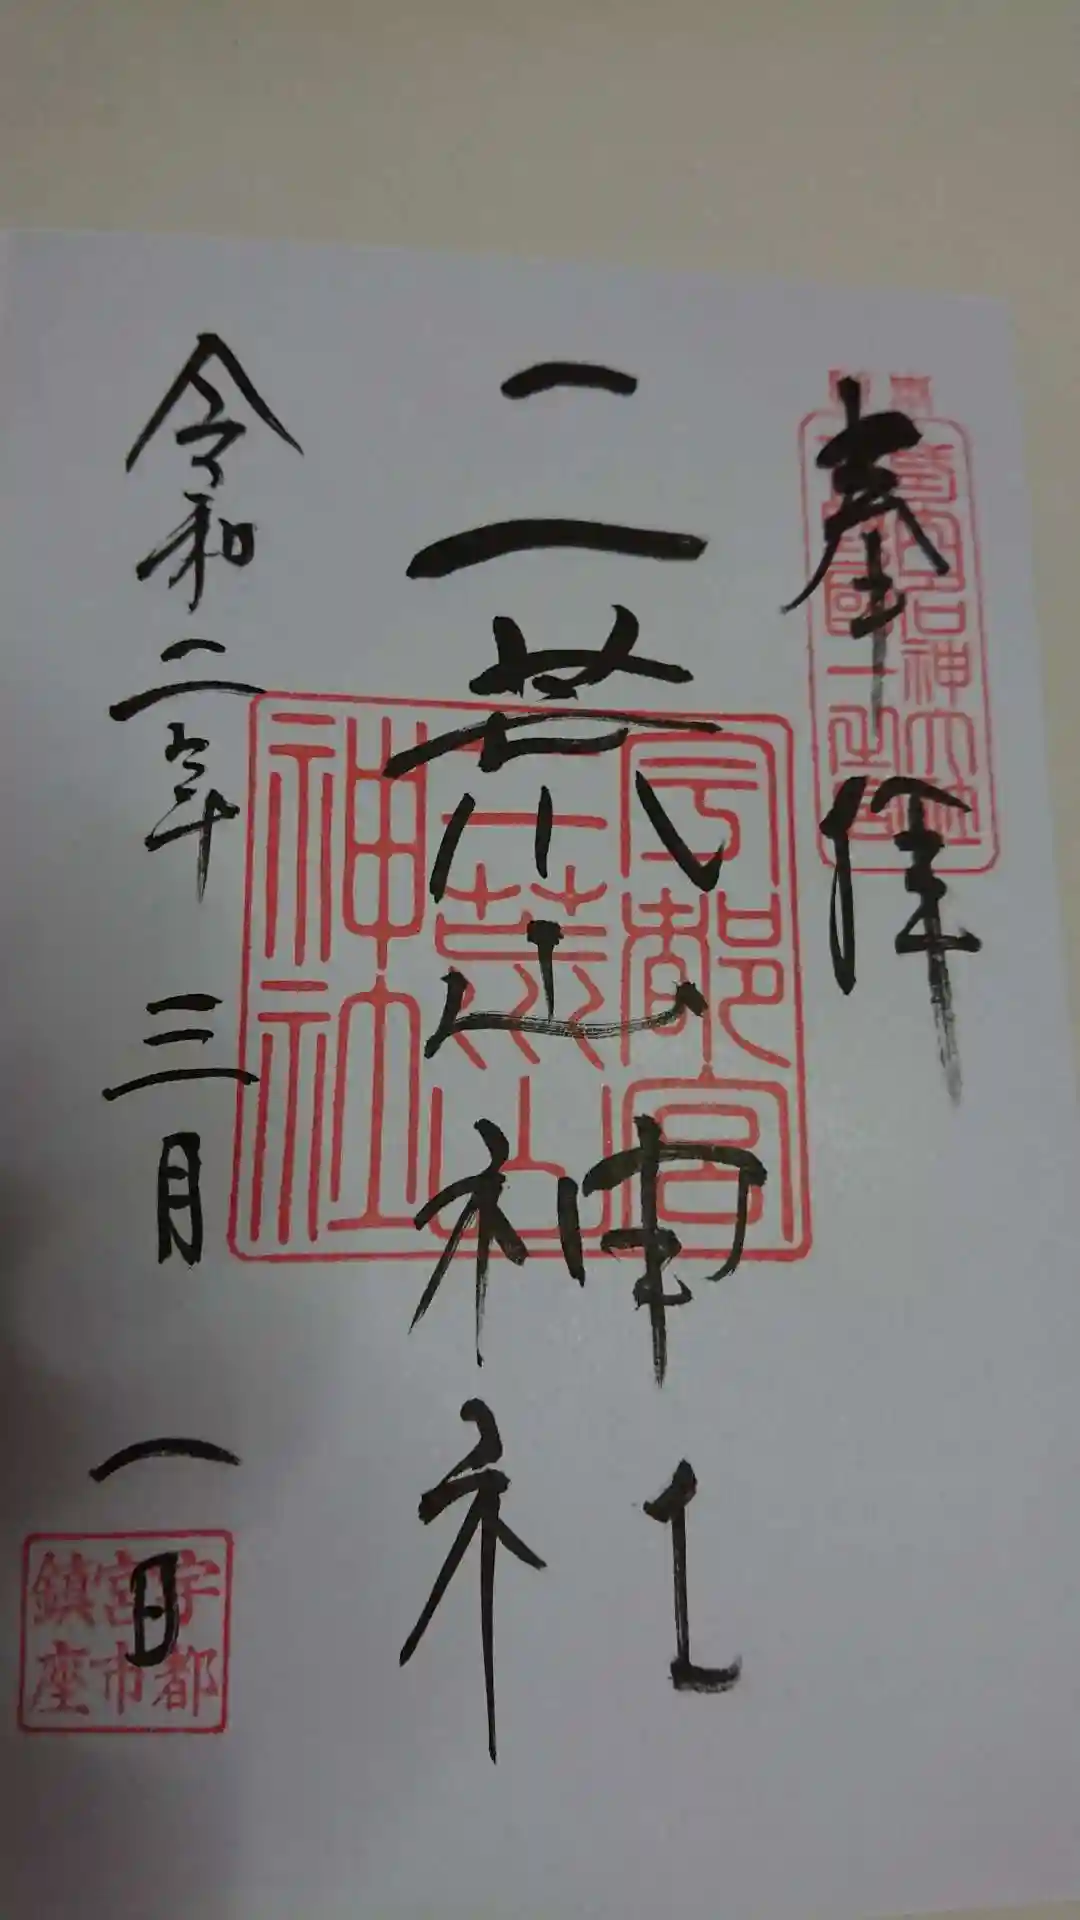 奉拝
二荒山神社
令和二年三月一日
宇都宮
二荒山
神社
宇都
宮市
鎮座